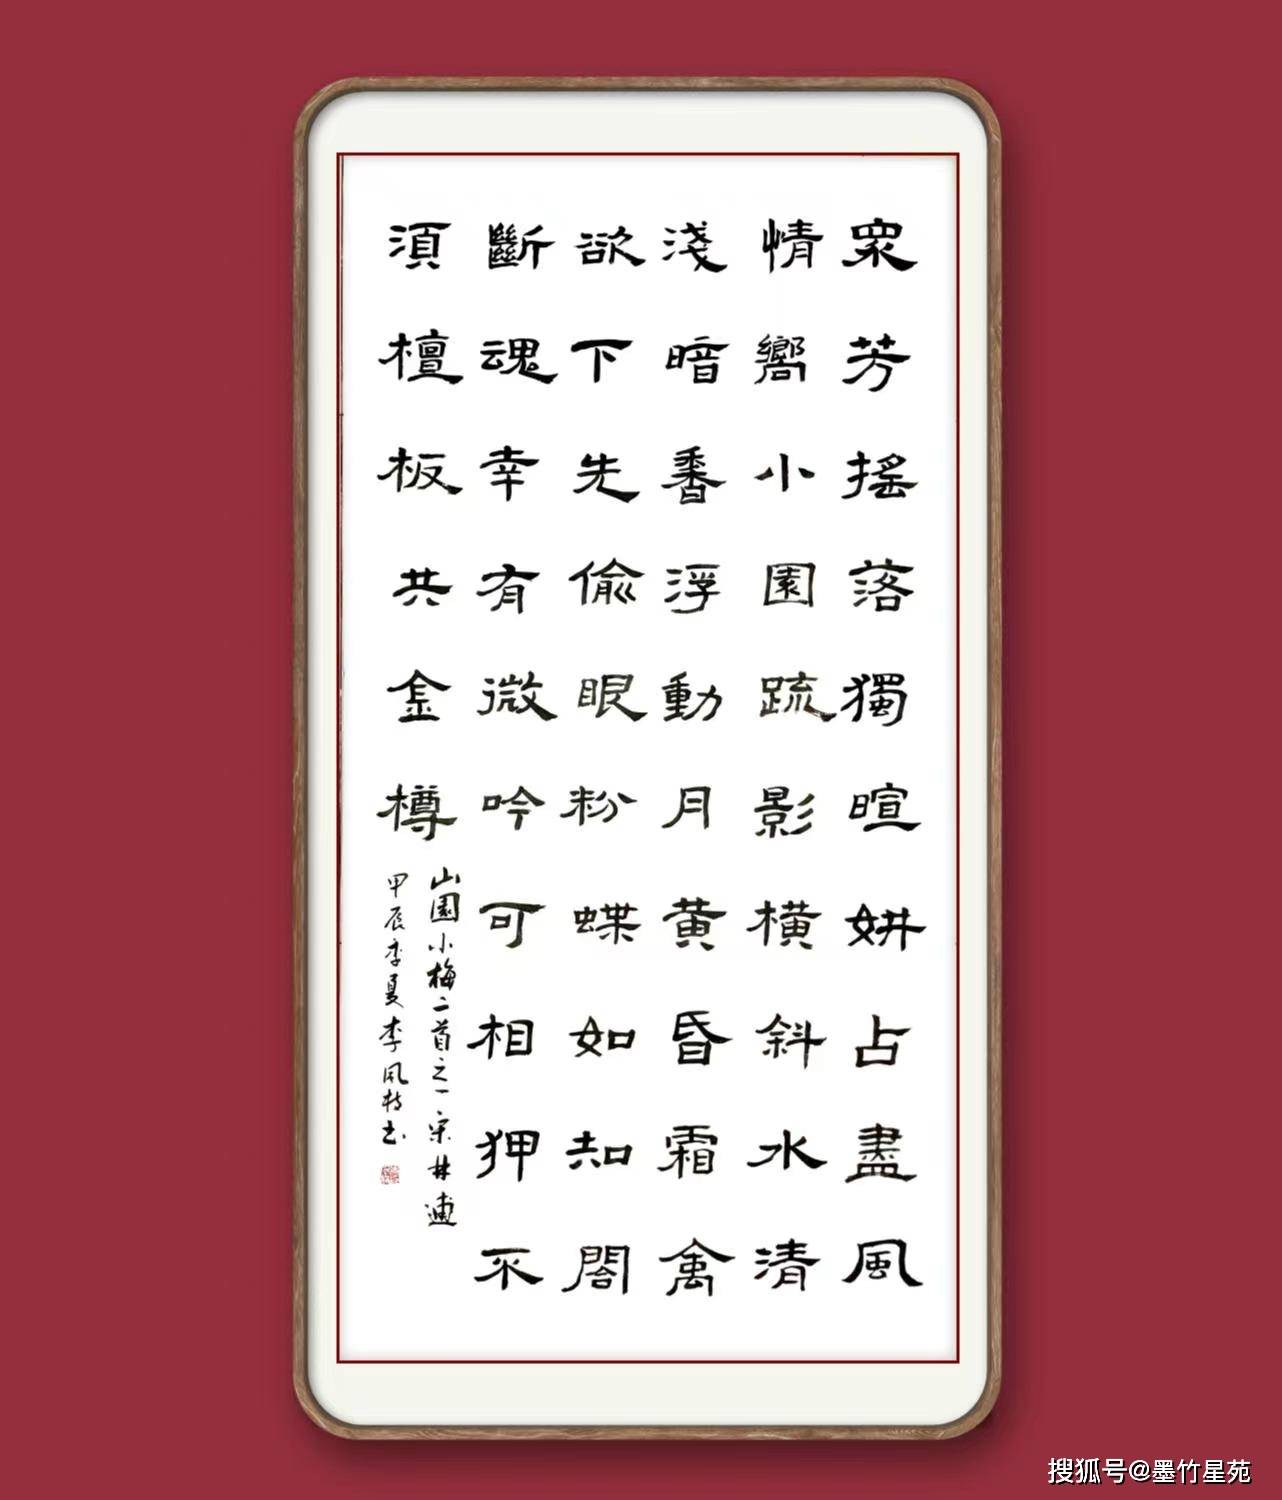 眾芳搖落獨暄妍占盡風
情嚮小園疏影橫斜水清
淺暗香浮動月黃昏霜禽
欲下先偷眼粉蝶如知閤
斷魂幸有微吟可相狎不
須檀板共金樽
山園小梅二首之一宋林逋
甲辰季夏李風枝书
搜狐号@墨竹星苑